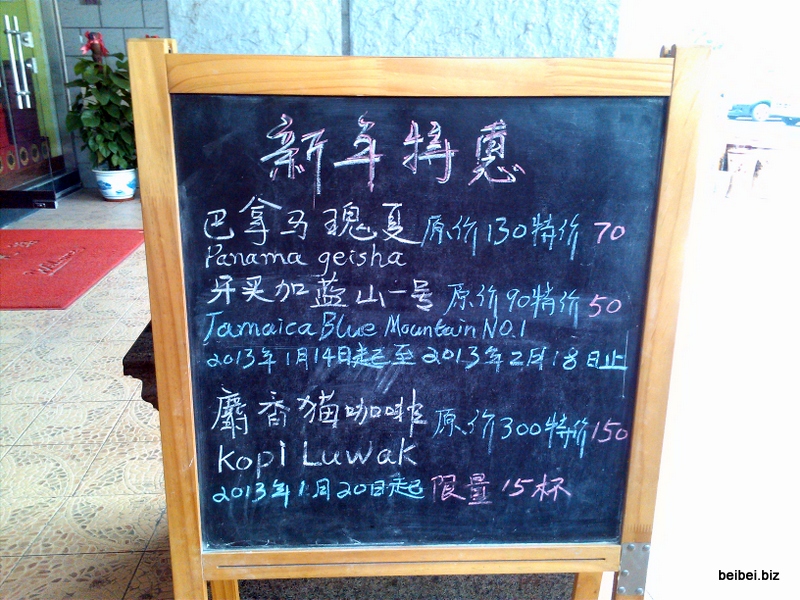 新年特惠
巴拿马瑰夏 原价130特价 70
Panama geisha
牙买加蓝山一号 原价90特价 50
Jamaica Blue Mountain NO.1
2013年1月14日起至2013年2月18日止
麝香猫咖啡 原价300特价150
Kopi Luwak
2013年1月20日起 限量15杯
beibei.biz